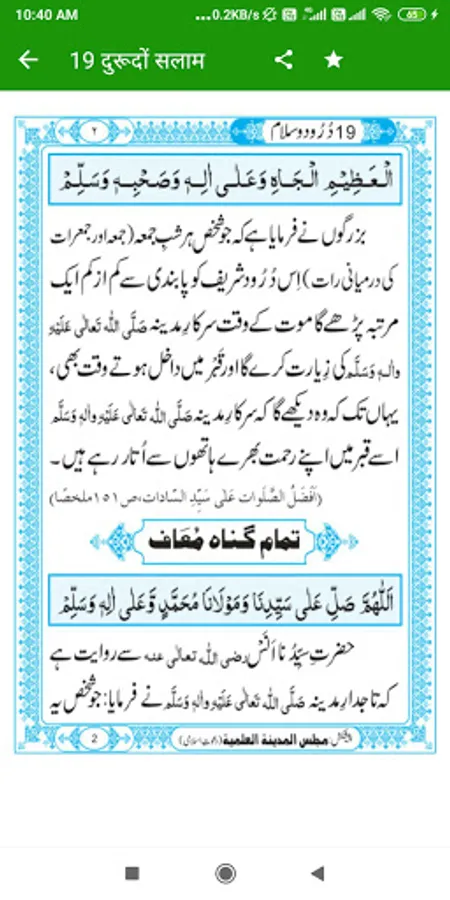 10:40 AM ...0.2KB/s 65
19 दुरूदों सलाम
٢ 19 دُرُود و سلام
الْعَظِيْمِ الْجَاهِ وَعَلٰى اٰلِهٖ وَصَحْبِهٖ وَسَلِّمْ
بزرگوں نے فرمایا ہے کہ جو شخص ہر شبِ جمعہ (جمعہ اور جمعرات
کی درمیانی رات) اِس دُرُود شریف کو پابندی سے کم از کم ایک
مرتبہ پڑھے گا موت کے وقت سرکارِ مدینہ صَلَّی اللّٰہُ تَعَالٰی عَلَیْہِ
واٰلہٖ وَسَلَّم کی زِیارت کرے گا اور قَبْر میں داخل ہوتے وقت بھی،
یہاں تک کہ وہ دیکھے گا کہ سرکارِ مدینہ صَلَّی اللّٰہُ تَعَالٰی عَلَیْہِ واٰلہٖ وَسَلَّم
اسے قبر میں اپنے رحمت بھرے ہاتھوں سے اُتار رہے ہیں۔
(اَفْضَلُ الصَّلَوات عَلٰی سَیِّدِ السَّادات، ص۱۵۱ملخصًا)
تمام گناہ مُعَاف
اَللّٰهُمَّ صَلِّ عَلٰى سَيِّدِنَا وَمَوْلَانَا مُحَمَّدٍ وَّعَلٰى اٰلِهٖ وَسَلِّمْ
حضرتِ سیِّدُنا اَنَس رضی اللّٰہ تعالٰی عنہ سے روایت ہے
کہ تاجدارِ مدینہ صَلَّی اللّٰہُ تَعَالٰی عَلَیْہِ واٰلہٖ وَسَلَّم نے فرمایا: جو شخص یہ
2 مجلس المدینۃ العلمیۃ